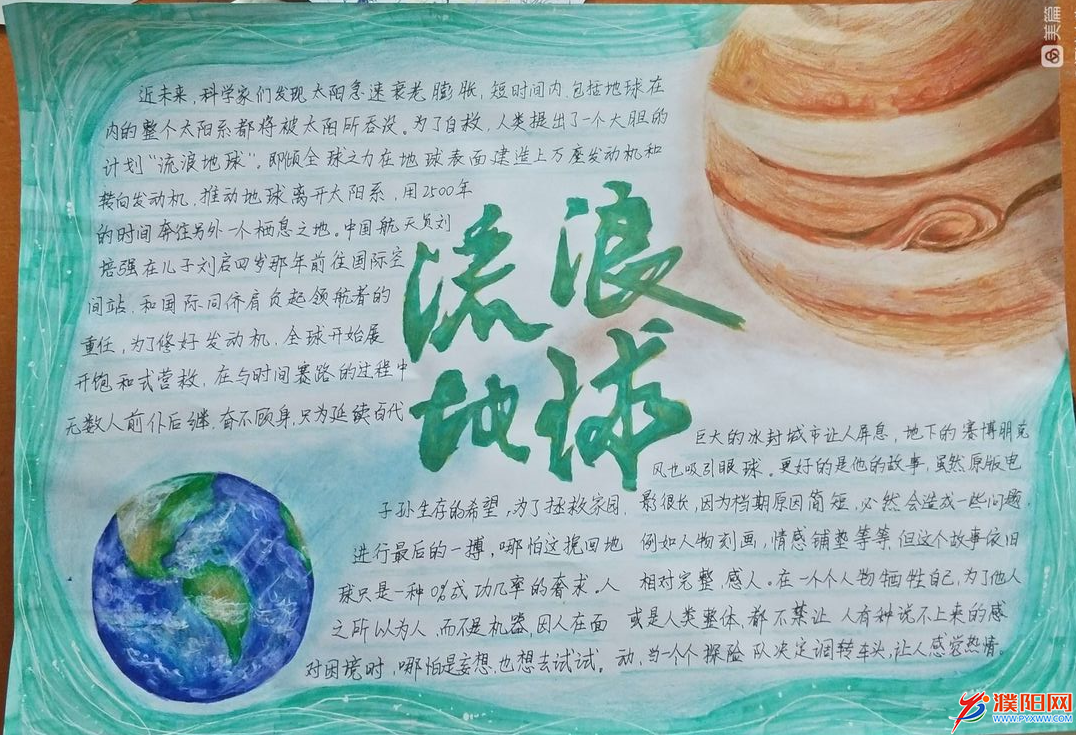 近未来，科学家们发现太阳急速衰老膨胀，短时间内包括地球在
内的整个太阳系都将被太阳所吞没。为了自救，人类提出了一个大胆的
计划“流浪地球”。即倾全球之力在地球表面建造上万座发动机和
转向发动机，推动地球离开太阳系，用2500年
的时间奔往另外一个栖息之地。中国航天员刘
培强在儿子刘启四岁那年前往国际空
间站，和国际同侪肩负起领航者的
重任，为了修好发动机，全球开始展
开饱和式营救，在与时间赛跑的过程中
无数人前仆后继，奋不顾身，只为延续百代
流浪
地球
子孙生存的希望，为了拯救家园，
进行最后的一搏，哪怕这挽回地
球只是一种0%成功几率的奢求。人
之所以为人，而不是机器，因人在面
对困境时，哪怕是妄想，也想去试试。
巨大的冰封城市让人屏息，地下的赛博朋克
风也吸引眼球。更好的是他的故事，虽然原版电
影很长，因为档期原因简短，必然会造成一些问题，
例如人物刻画，情感铺垫等等，但这个故事依旧
相对完整感人。在一个个人物牺牲自己，为了他人
或是人类整体，都不禁让人有种说不上来的感
动，当一个个探险队决定调转车头，让人感觉热情。
美篇
濮阳网
WWW.PYXWW.COM